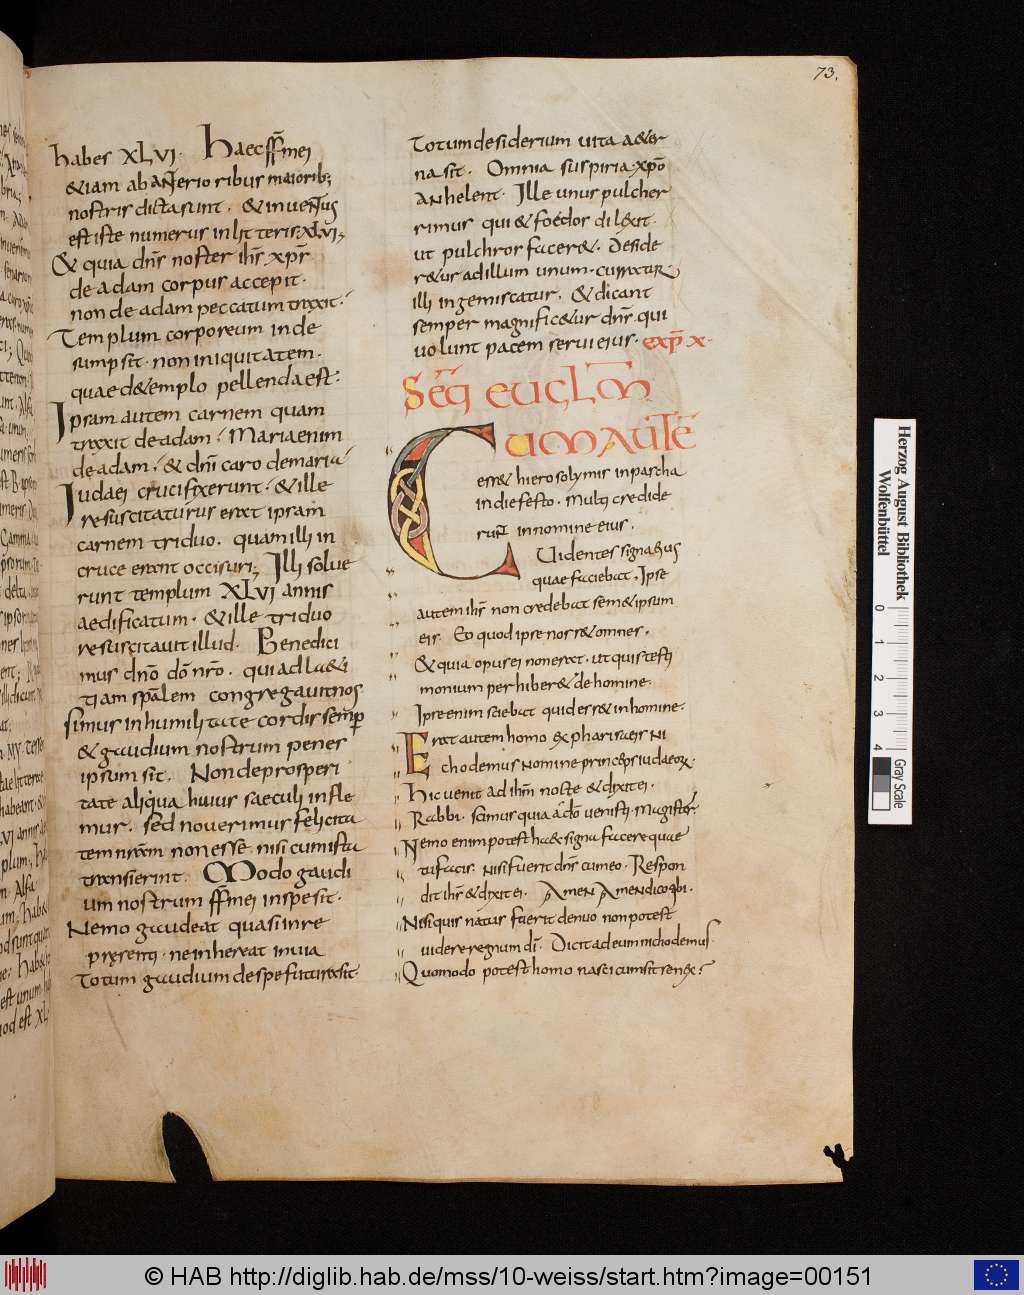 73.
habes XLVI. Haec ffr̄ mei
&iam ab anterioribus maiorib;
nostris dicta sunt. & inventus
est iste numerus in litteris XLVI;
& quia dn̄s noster ih̄s xp̄s
de adam corpus accepit.
non de adam peccatum traxit.
Templum corporeum inde
sumpsit. non iniquitatem.
quae de templo pellenda est:
Ipsam autem carnem quam
traxit de adam. Maria enim
de adam. & dn̄i caro de maria
Iudaei crucifixerunt. & ille
resuscitaturus erat ipsam
carnem triduo. quam illi in
cruce erant occisuri; Illi solue
runt templum XLVI annis
aedificatum. & ille triduo
resuscitauit illud. Benedici
mus dn̄o dō nr̄o. qui ad l&i
tiam sp̄alem congregauit nos
simus in humilitate cordis semp
& gaudium nostrum penes
ipsum sit. Non de prosperi
tate aliqua huius saeculi infle
mur. sed nouerimus felicita
tem nram non esse nisi cum ista
transierint. Modo gaudi
um nostrum ffr̄ mei in spe sit.
Nemo gaudeat quasi in re
pręsenti. ne inhereat in uia
Totum gaudium de spe futura sit.
Totum desiderium uita a&er
na sit. Omnia suspiria xp̄o
anhelent. Ille unus pulcher
rimus qui & foedos dilexit.
ut pulchros facer&. Deside
r&ur ad illum unum curratur
illi ingemiscatur. & dicant
semper magnific&ur dn̄s qui
uolunt pacem serui eius. exp̄ x.
Seq̄ euglm̄
Cum aute
ess& hierosolymis in pascha
in die festo. multi credide
runt in nomine eius.
Uidentes signa eius
quae faciebat. Ipse
autem ih̄s non credebat sem&ipsum
eis. Eo quod ipse noss& omnes.
& quia opus ei non erat. ut quis testi
monium perhiber& de homine.
Ipse enim sciebat quid ess& in homine.
Erat autem homo ex pharisaeis ni
chodemus nomine princeps iudaeorꝫ.
Hic uenit ad ih̄m nocte & dixit ei.
Rabbi. scimus quia a dō uenisti magister.
Nemo enim potest haec signa facere quae
tu facis. nisi fuerit dn̄s cum eo. Respon
dit ih̄s & dixit ei. Amen Amen dico tibi.
Nisi quis natus fuerit denuo non potest
uidere regnum dī. Dicit ad eum nichodemus
Quomodo potest homo nasci cum sit senex?
Herzog August Bibliothek
Wolfenbüttel
0 1 2 3 4
Gray Scale
© HAB http://diglib.hab.de/mss/10-weiss/start.htm?image=00151